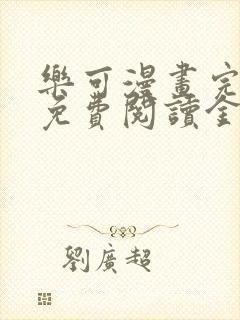 樂可漫畫完
免費閱讀全
劉廣超